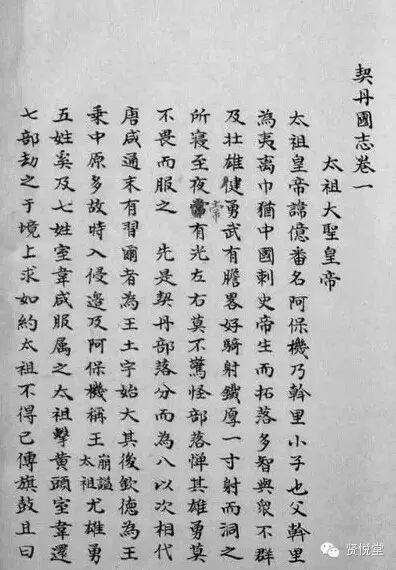 契丹國志卷一
太祖大聖皇帝
太祖皇帝諱億番名阿保機乃幹里小子也父幹里
為夷离巾猶中國刺史帝生而拓落多智與衆不群
及壯雄健勇武有膽畧好騎射鐵厚一寸射而洞之
所寝至夜常有光左右莫不驚怪部落憚其雄勇莫
不畏而服之 先是契丹部落分而為八以次相代
唐咸通末有習爾者為王土宇始大其後欽德為王
乘中原多故時入侵邉及阿保機稱王崩謚太祖尤雄勇
五姓奚及七姓室韋咸服属之太祖擊黃頭室韋還
七部劫之于境上求如約太祖不得已傳旗鼓且曰
贤悦堂